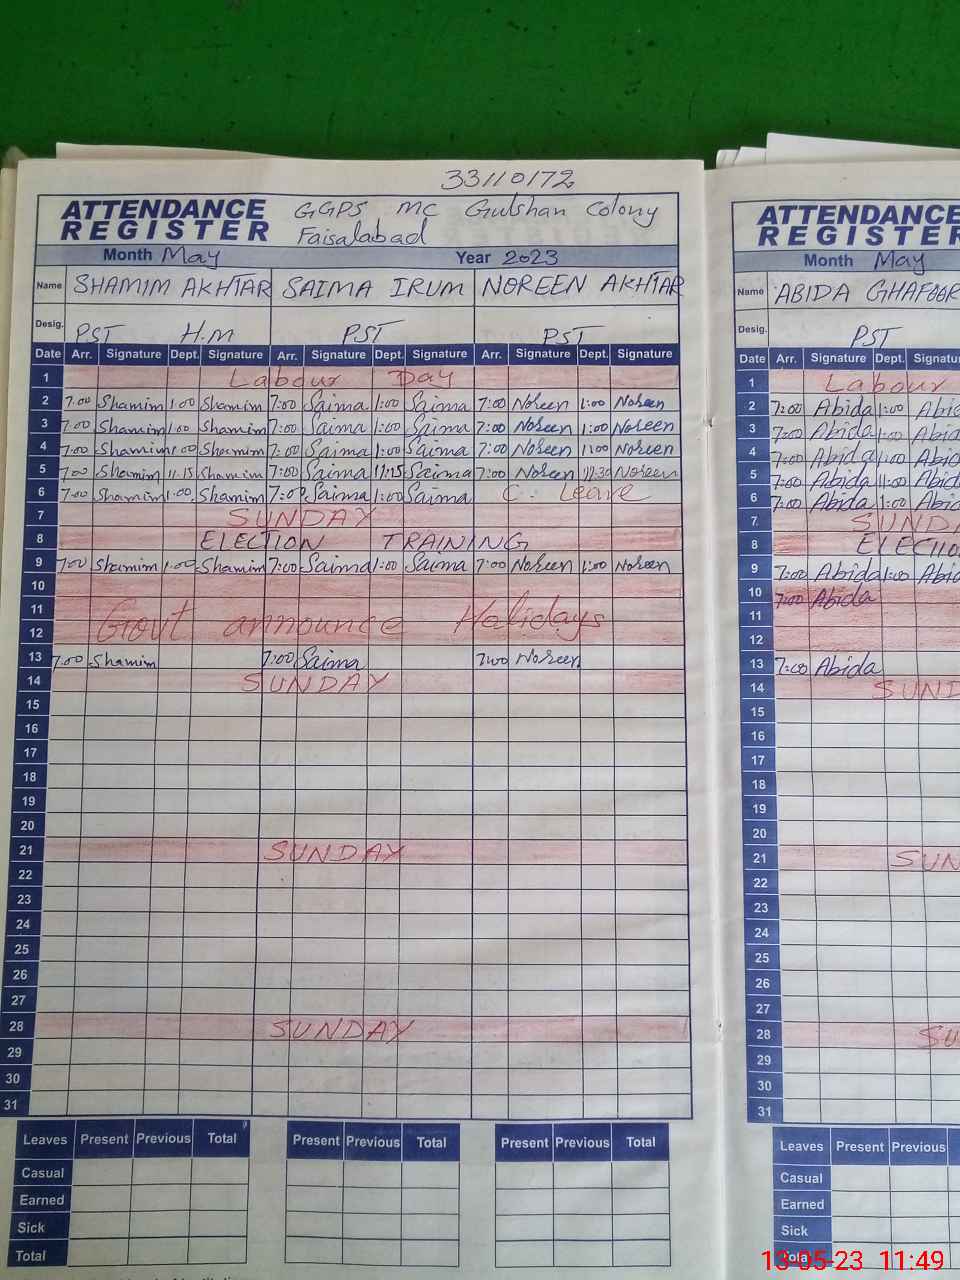 33110172
ATTENDANCE REGISTER GGPS MC Gulshan Colony Faisalabad
Month May Year 2023
Name SHAMIM AKHTAR SAIMA IRUM NOREEN AKHTAR
Desig. PST H.M PST PST
Date Arr. Signature Dept. Signature Arr. Signature Dept. Signature Arr. Signature Dept. Signature
1 Labour Day
2 7:00 Shamim 1:00 Shamim 7:00 Saima 1:00 Saima 7:00 Noreen 1:00 Noreen
3 7:00 Shamim 1:00 Shamim 7:00 Saima 1:00 Saima 7:00 Noreen 1:00 Noreen
4 7:00 Shamim 1:00 Shamim 7:00 Saima 1:00 Saima 7:00 Noreen 1:00 Noreen
5 7:00 Shamim 11:15 Shamim 7:00 Saima 11:15 Saima 7:00 Noreen 11:30 Noreen
6 7:00 Shamim 1:00 Shamim 7:00 Saima 1:00 Saima C. Leave
7 SUNDAY
8 ELECTION TRAINING
9 7:00 Shamim 1:00 Shamim 7:00 Saima 1:00 Saima 7:00 Noreen 1:00 Noreen
10
11 Govt announce Holidays
12
13 7:00 Shamim 7:00 Saima 7:00 Noreen
14 SUNDAY
15
16
17
18
19
20
21 SUNDAY
22
23
24
25
26
27
28 SUNDAY
29
30
31
Leaves Present Previous Total Present Previous Total Present Previous Total
Casual
Earned
Sick
Total
ATTENDANCE
REGISTER
Month May
Name ABIDA GHAFOOR
Desig. PST
Date Arr. Signature Dept.
1 Labour
2 7:00 Abida 1:00
3 7:00 Abida 1:00
4 7:00 Abida 1:00
5 7:00 Abida
6 7:00 Abida 1:00
7
8
9 7:00 Abida 1:00
10 7:00 Abida
11
12
13 7:00 Abida
14
15
16
17
18
19
20
21
22
23
24
25
26
27
28
29
30
31
Leaves Present Previous
Casual
Earned
Sick
Total
13-05-23 11:49